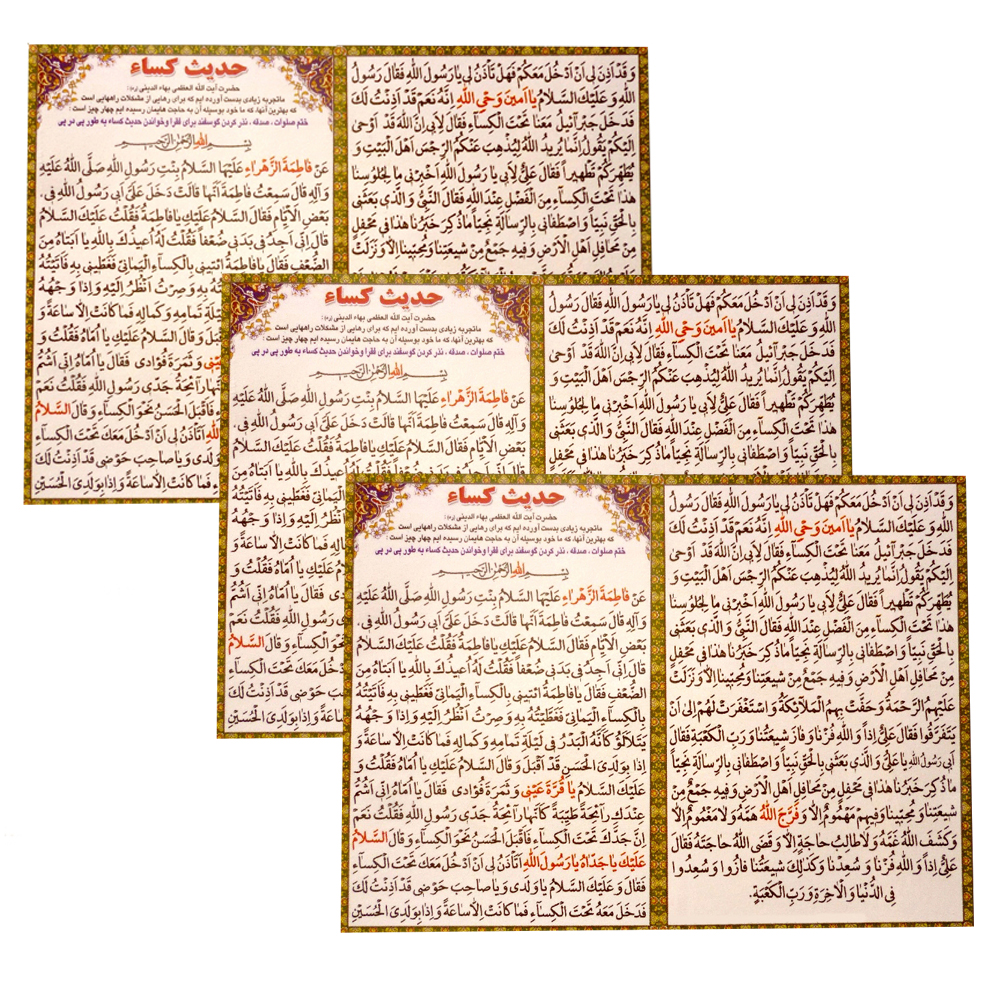 حدیث کساء
حضرت آیت الله العظمی بهاء الدینی (ره) :
ماتجربه زیادی بدست آورده ایم که برای رهایی از مشکلات راههایی است
که بهترین آنها، که ما خود بوسیله آن به حاجت هایمان رسیده ایم چهار چیز است :
ختم صلوات ، صدقه ، نذر کردن گوسفند برای فقرا وخواندن حدیث کساء به طور پی در پی
بِسْمِ اللهِ الرَّحْمٰنِ الرَّحیمِ
عَنْ فاطِمَةَ الزَّهْراءِ عَلَیْهَا السَّلامُ بِنْتِ رَسُولِ اللهِ صَلَّى اللهُ عَلَیْهِ
وَ آلِهِ قالَ سَمِعْتُ فاطِمَةَ اَنَّها قالَتْ دَخَلَ عَلَیَّ اَبی رَسُولُ اللهِ فی
بَعْضِ الْاَیّامِ فَقالَ السَّلامُ عَلَیْكِ یا فاطِمَةُ فَقُلْتُ عَلَیْكَ السَّلامُ
قالَ اِنّی اَجِدُ فی بَدَنی ضُعْفاً فَقُلْتُ لَهُ اُعیذُكَ بِاللهِ یا اَبَتاهُ مِنَ
الضَّعْفِ فَقالَ یا فاطِمَةُ ائْتینی بِالْكِساءِ الْیَمانی فَغَطّینی بِهِ فَاَتَیْتُهُ
بِالْكِساءِ الْیَمانی فَغَطَّیْتُهُ بِهِ وَ صِرْتُ اَنْظُرُ اِلَیْهِ وَ اِذا وَجْهُهُ
یَتَلَأْلَؤُ كَاَنَّهُ الْبَدْرُ فی لَیْلَةِ تَمامِهِ وَ كَمالِهِ فَما كانَتْ اِلّا ساعَةً وَ
اِذا بِوَلَدِیَ الْحَسَنِ قَدْ اَقْبَلَ وَ قالَ السَّلامُ عَلَیْكِ یا اُمّاهُ فَقُلْتُ وَ
عَلَیْكَ السَّلامُ یا قُرَّةَ عَیْنی وَ ثَمَرَةَ فُؤادی فَقالَ یا اُمّاهُ اِنّی اَشَمُّ
عِنْدَكِ رائِحَةً طَیِّبَةً كَاَنَّها رائِحَةُ جَدّی رَسُولِ اللهِ فَقُلْتُ نَعَمْ
اِنَّ جَدَّكَ تَحْتَ الْكِساءِ فَاَقْبَلَ الْحَسَنُ نَحْوَ الْكِساءِ وَ قالَ السَّلامُ
عَلَیْكَ یا جَدّاهُ یا رَسُولَ اللهِ اَتَأْذَنُ لی اَنْ اَدْخُلَ مَعَكَ تَحْتَ الْكِساءِ
فَقالَ وَ عَلَیْكَ السَّلامُ یا وَلَدی وَ یا صاحِبَ حَوْضی قَدْ اَذِنْتُ لَكَ
فَدَخَلَ مَعَهُ تَحْتَ الْكِساءِ فَما كانَتْ اِلّا ساعَةً وَ اِذا بِوَلَدِیَ الْحُسَیْنِ
وَ قَدْ اَذِنَ لی اَنْ اَدْخُلَ مَعَكُمْ فَهَلْ تَأْذَنُ لی یا رَسُولَ اللهِ فَقالَ رَسُولُ
اللهِ وَ عَلَیْكَ السَّلامُ یا اَمینَ وَحْیِ اللهِ اِنَّهُ نَعَمْ قَدْ اَذِنْتُ لَكَ
فَدَخَلَ جَبْرآئیلُ مَعَنا تَحْتَ الْكِساءِ فَقالَ لِاَبی اِنَّ اللهَ قَدْ اَوْحى
اِلَیْكُمْ یَقُولُ اِنَّما یُریدُ اللهُ لِیُذْهِبَ عَنْكُمُ الرِّجْسَ اَهْلَ الْبَیْتِ وَ
یُطَهِّرَكُمْ تَطْهیراً فَقالَ عَلِیٌّ لِاَبی یا رَسُولَ اللهِ اَخْبِرْنی ما لِجُلُوسِنا
هذا تَحْتَ الْكِساءِ مِنَ الْفَضْلِ عِنْدَ اللهِ فَقالَ النَّبِیُّ وَ الَّذی بَعَثَنی
بِالْحَقِّ نَبِیّاً وَ اصْطَفانی بِالرِّسالَةِ نَجِیّاً ما ذُكِرَ خَبَرُنا هذا فی مَحْفِلٍ
مِنْ مَحافِلِ اَهْلِ الْاَرْضِ وَ فیهِ جَمْعٌ مِنْ شیعَتِنا وَ مُحِبّینا اِلّا وَ نَزَلَتْ
عَلَیْهِمُ الرَّحْمَةُ وَ حَفَّتْ بِهِمُ الْمَلآئِكَةُ وَ اسْتَغْفَرَتْ لَهُمْ اِلى اَنْ
یَتَفَرَّقُوا فَقالَ عَلِیٌّ اِذاً وَ اللهِ فُزْنا وَ فازَ شیعَتُنا وَ رَبِّ الْكَعْبَةِ فَقالَ
اَبی رَسُولُ اللهِ یا عَلِیُّ وَ الَّذی بَعَثَنی بِالْحَقِّ نَبِیّاً وَ اصْطَفانی بِالرِّسالَةِ نَجِیّاً
ما ذُكِرَ خَبَرُنا هذا فی مَحْفِلٍ مِنْ مَحافِلِ اَهْلِ الْاَرْضِ وَ فیهِ جَمْعٌ مِنْ
شیعَتِنا وَ مُحِبّینا وَ فیهِمْ مَهْمُومٌ اِلّا وَ فَرَّجَ اللهُ هَمَّهُ وَ لا مَغْمُومٌ اِلّا
وَ كَشَفَ اللهُ غَمَّهُ وَ لا طالِبُ حاجَةٍ اِلّا وَ قَضَى اللهُ حاجَتَهُ فَقالَ
عَلِیٌّ اِذاً وَ اللهِ فُزْنا وَ سُعِدْنا وَ كَذلِكَ شیعَتُنا فازُوا وَ سُعِدُوا
فِی الدُّنْیا وَ الْاخِرَةِ وَ رَبِّ الْكَعْبَةِ.